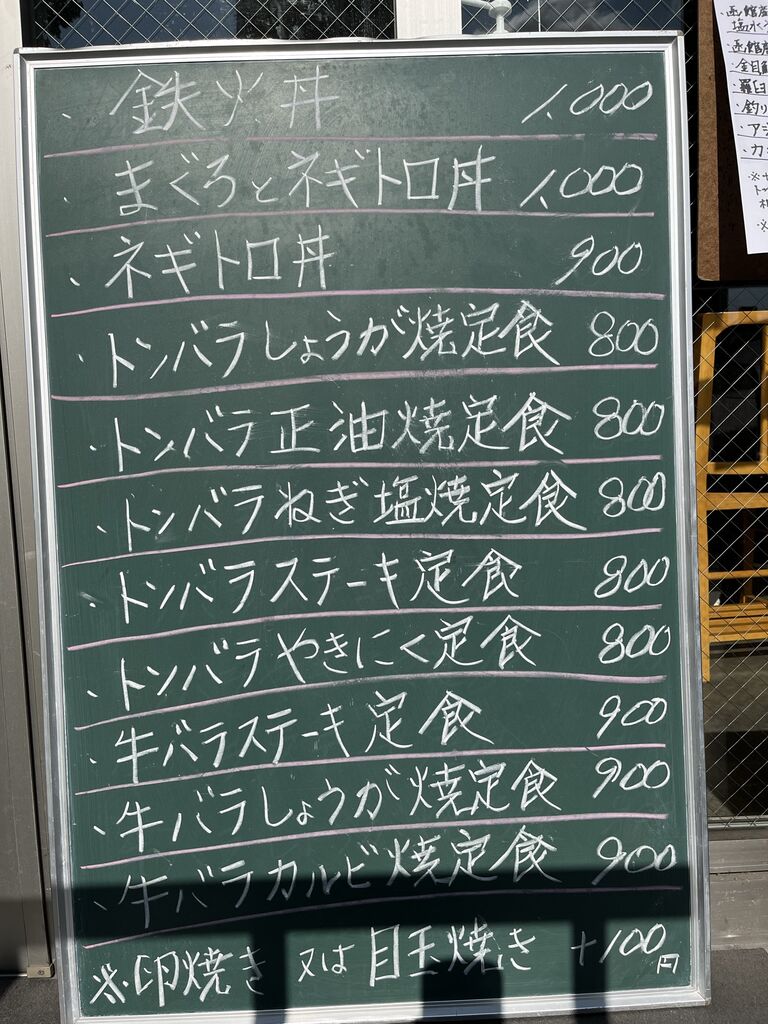 ・鉄火丼 1,000
・まぐろとネギトロ丼 1,000
・ネギトロ丼 900
・トンバラしょうが焼定食 800
・トンバラ正油焼定食 800
・トンバラねぎ塩焼定食 800
・トンバラステーキ定食 800
・トンバラやきにく定食 800
・牛バラステーキ定食 900
・牛バラしょうが焼定食 900
・牛バラカルビ焼定食 900
※卵焼き 又は 目玉焼き +100円
・函館産
塩水
・函館産
・金目鯛
・羅臼
・釣り
・アジ